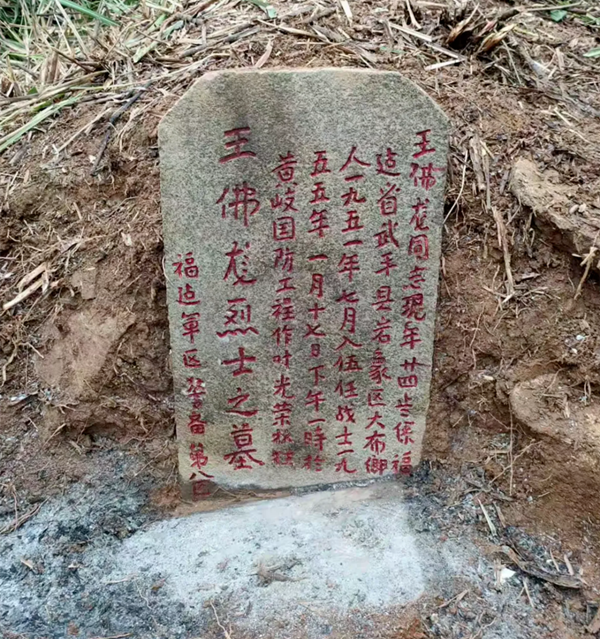 王佛龙同志现年廿四岁係福
建省武平县岩象区大布鄉
人一九五一年七月入伍任战士一九
五五年一月十七日下午一時於
黄岐国防工程作叶光荣牺牲
王佛龙烈士之墓
福建軍区警备第八